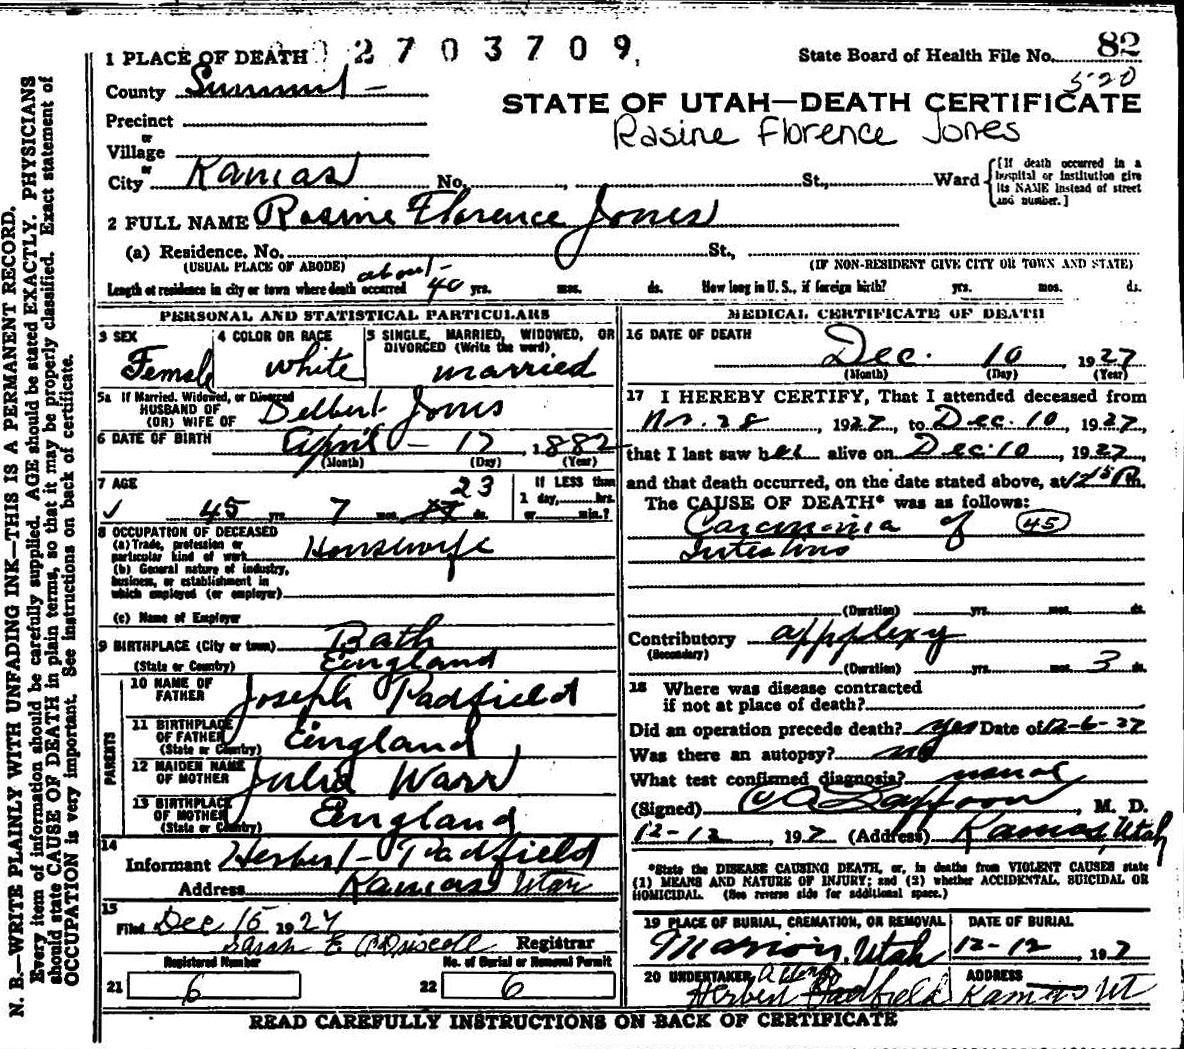 N. B.—WRITE PLAINLY WITH UNFADING INK—THIS IS A PERMANENT RECORD.
Every item of information should be carefully supplied. AGE should be stated EXACTLY. PHYSICIANS
should state CAUSE OF DEATH in plain terms, so that it may be properly classified. Exact statement of
OCCUPATION is very important. See instructions on back of certificate.
2703709
1 PLACE OF DEATH
State Board of Health File No. 82
520
County Summit
STATE OF UTAH—DEATH CERTIFICATE
Precinct
Rasine Florence Jones
or
Village
or
City Kamas No. , St., Ward
[If death occurred in a
hospital or institution give
its NAME instead of street
and number.]
2 FULL NAME Rasine Florence Jones
(a) Residence. No. St.,
(USUAL PLACE OF ABODE) (IF NON-RESIDENT GIVE CITY OR TOWN AND STATE)
Length of residence in city or town where death occurred about 40 yrs. mos. ds. How long in U. S., if foreign birth? yrs. mos. ds.
PERSONAL AND STATISTICAL PARTICULARS
3 SEX Female
4 COLOR OR RACE white
5 SINGLE, MARRIED, WIDOWED, OR
DIVORCED (Write the word)
married
5a If Married, Widowed, or Divorced
HUSBAND OF
(OR) WIFE OF Delbert Jones
6 DATE OF BIRTH April - 17, 1882
(Month) (Day) (Year)
7 AGE
45 yrs. 7 mos. 23 ds.
If LESS than
1 day, hrs.
or min.?
8 OCCUPATION OF DECEASED
(a) Trade, profession or
particular kind of work Housewife
(b) General nature of industry,
business, or establishment in
which employed (or employer)
(c) Name of Employer
9 BIRTHPLACE (City or town) Bath
(State or Country) England
PARENTS
10 NAME OF
FATHER Joseph Padfield
11 BIRTHPLACE
OF FATHER
(State or Country) England
12 MAIDEN NAME
OF MOTHER Julia Warr
13 BIRTHPLACE
OF MOTHER
(State or Country) England
14
Informant Herbert Padfield
Address Kamas Utah
15
Filed Dec 15 1927
Sarah E O'Driscoll Registrar
Registered Number No. of Burial or Removal Permit
21 6 22 6
MEDICAL CERTIFICATE OF DEATH
16 DATE OF DEATH
Dec. 10 1927
(Month) (Day) (Year)
17 I HEREBY CERTIFY, That I attended deceased from
Nov. 28, 1927, to Dec. 10, 1927,
that I last saw her alive on Dec. 10, 1927,
and that death occurred, on the date stated above, at
The CAUSE OF DEATH* was as follows:
Carcinoma of 45
Intestines
(Duration) yrs. mos. ds.
Contributory apoplexy
(Secondary)
(Duration) yrs. mos. 3 ds.
18 Where was disease contracted
if not at place of death?
Did an operation precede death? yes Date of 12-6-27
Was there an autopsy? no
What test confirmed diagnosis?
(Signed) , M. D.
12-12, 1927 (Address) Kamas, Utah
*State the DISEASE CAUSING DEATH, or, in deaths from VIOLENT CAUSES state
(1) MEANS AND NATURE OF INJURY; and (2) whether ACCIDENTAL, SUICIDAL OR
HOMICIDAL. (See reverse side for additional space.)
19 PLACE OF BURIAL, CREMATION, OR REMOVAL DATE OF BURIAL
Marion, Utah 12-12, 1927
20 UNDERTAKER ADDRESS
Herbert Padfield Kamas Ut
READ CAREFULLY INSTRUCTIONS ON BACK OF CERTIFICATE